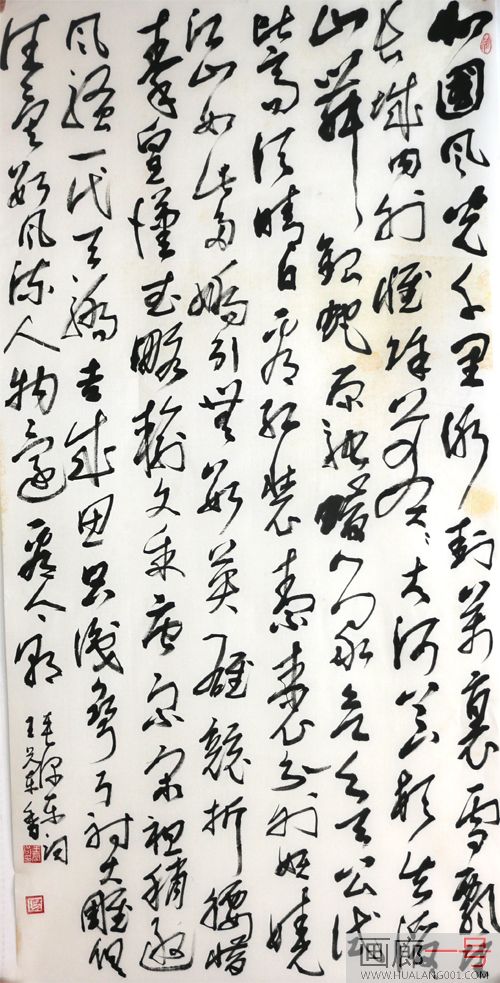 北國风光千里冰封萬裏雪飘
长城内外惟馀莽莽大河上下顿失滔
山舞银蛇原驰蜡象欲与天公试
比高须晴日看红装素裹分外妖娆
江山如此多娇引無數英雄競折腰惜
秦皇漢武略输文采唐宗宋祖稍逊
风骚一代天骄吉成思只識弯弓射大雕俱
往矣數风流人物还看今朝
毛泽东词
画廊一号
WWW.HUALANG001.COM